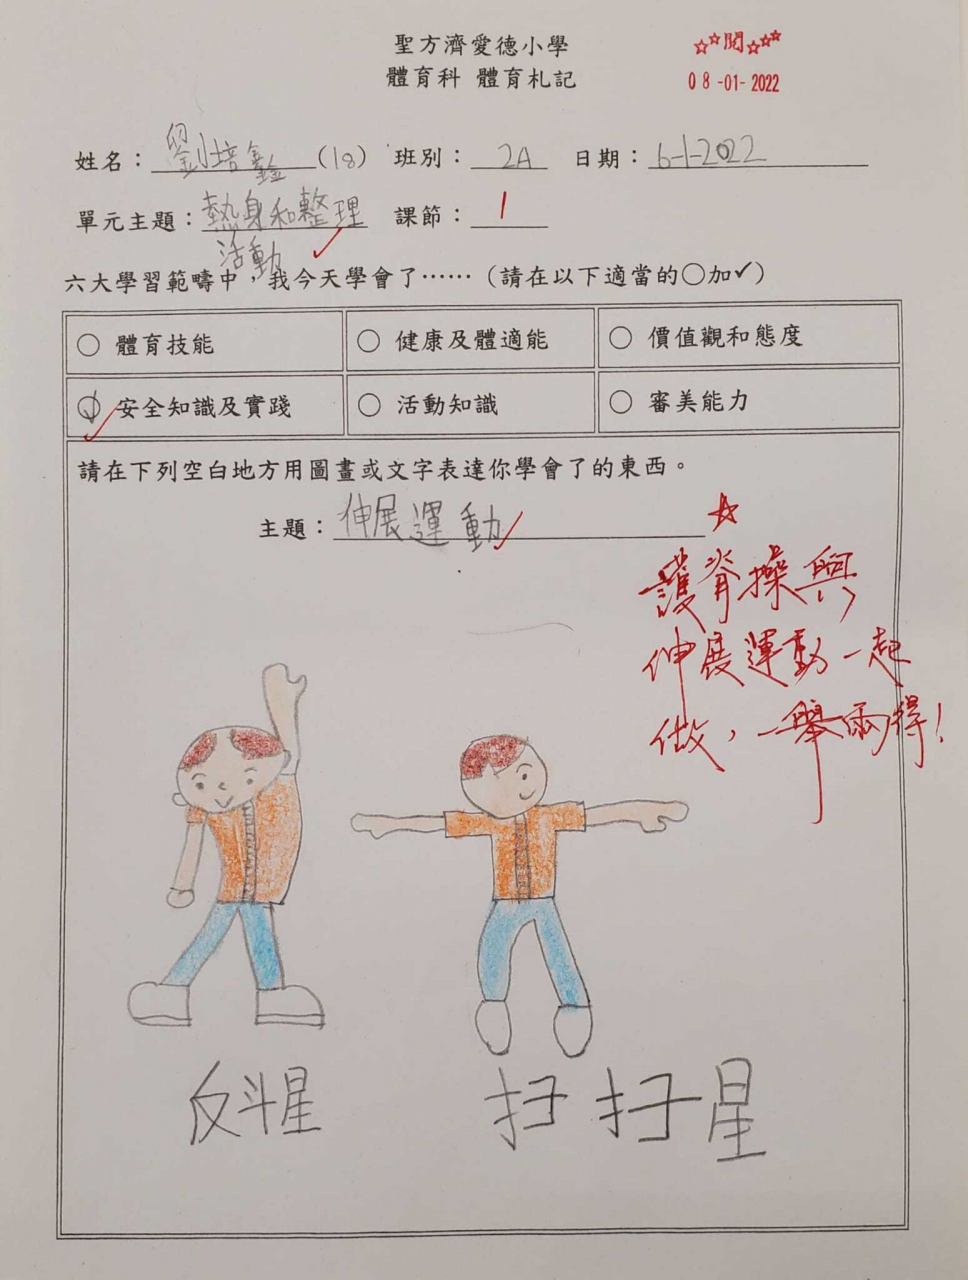 聖方濟愛德小學
☆☆閱☆☆☆
體育科 體育札記
08-01-2022
姓名：劉培鑫（18） 班別：2A 日期：6-1-2022
單元主題：熱身和整理 課節：1
活動
六大學習範疇中，我今天學會了……（請在以下適當的○加✓）
○ 體育技能 ○ 健康及體適能 ○ 價值觀和態度
○ 安全知識及實踐 ○ 活動知識 ○ 審美能力
請在下列空白地方用圖畫或文字表達你學會了的東西。
主題：伸展運動
護脊操與
伸展運動一起
做，一舉兩得！
反斗星 扫扫星